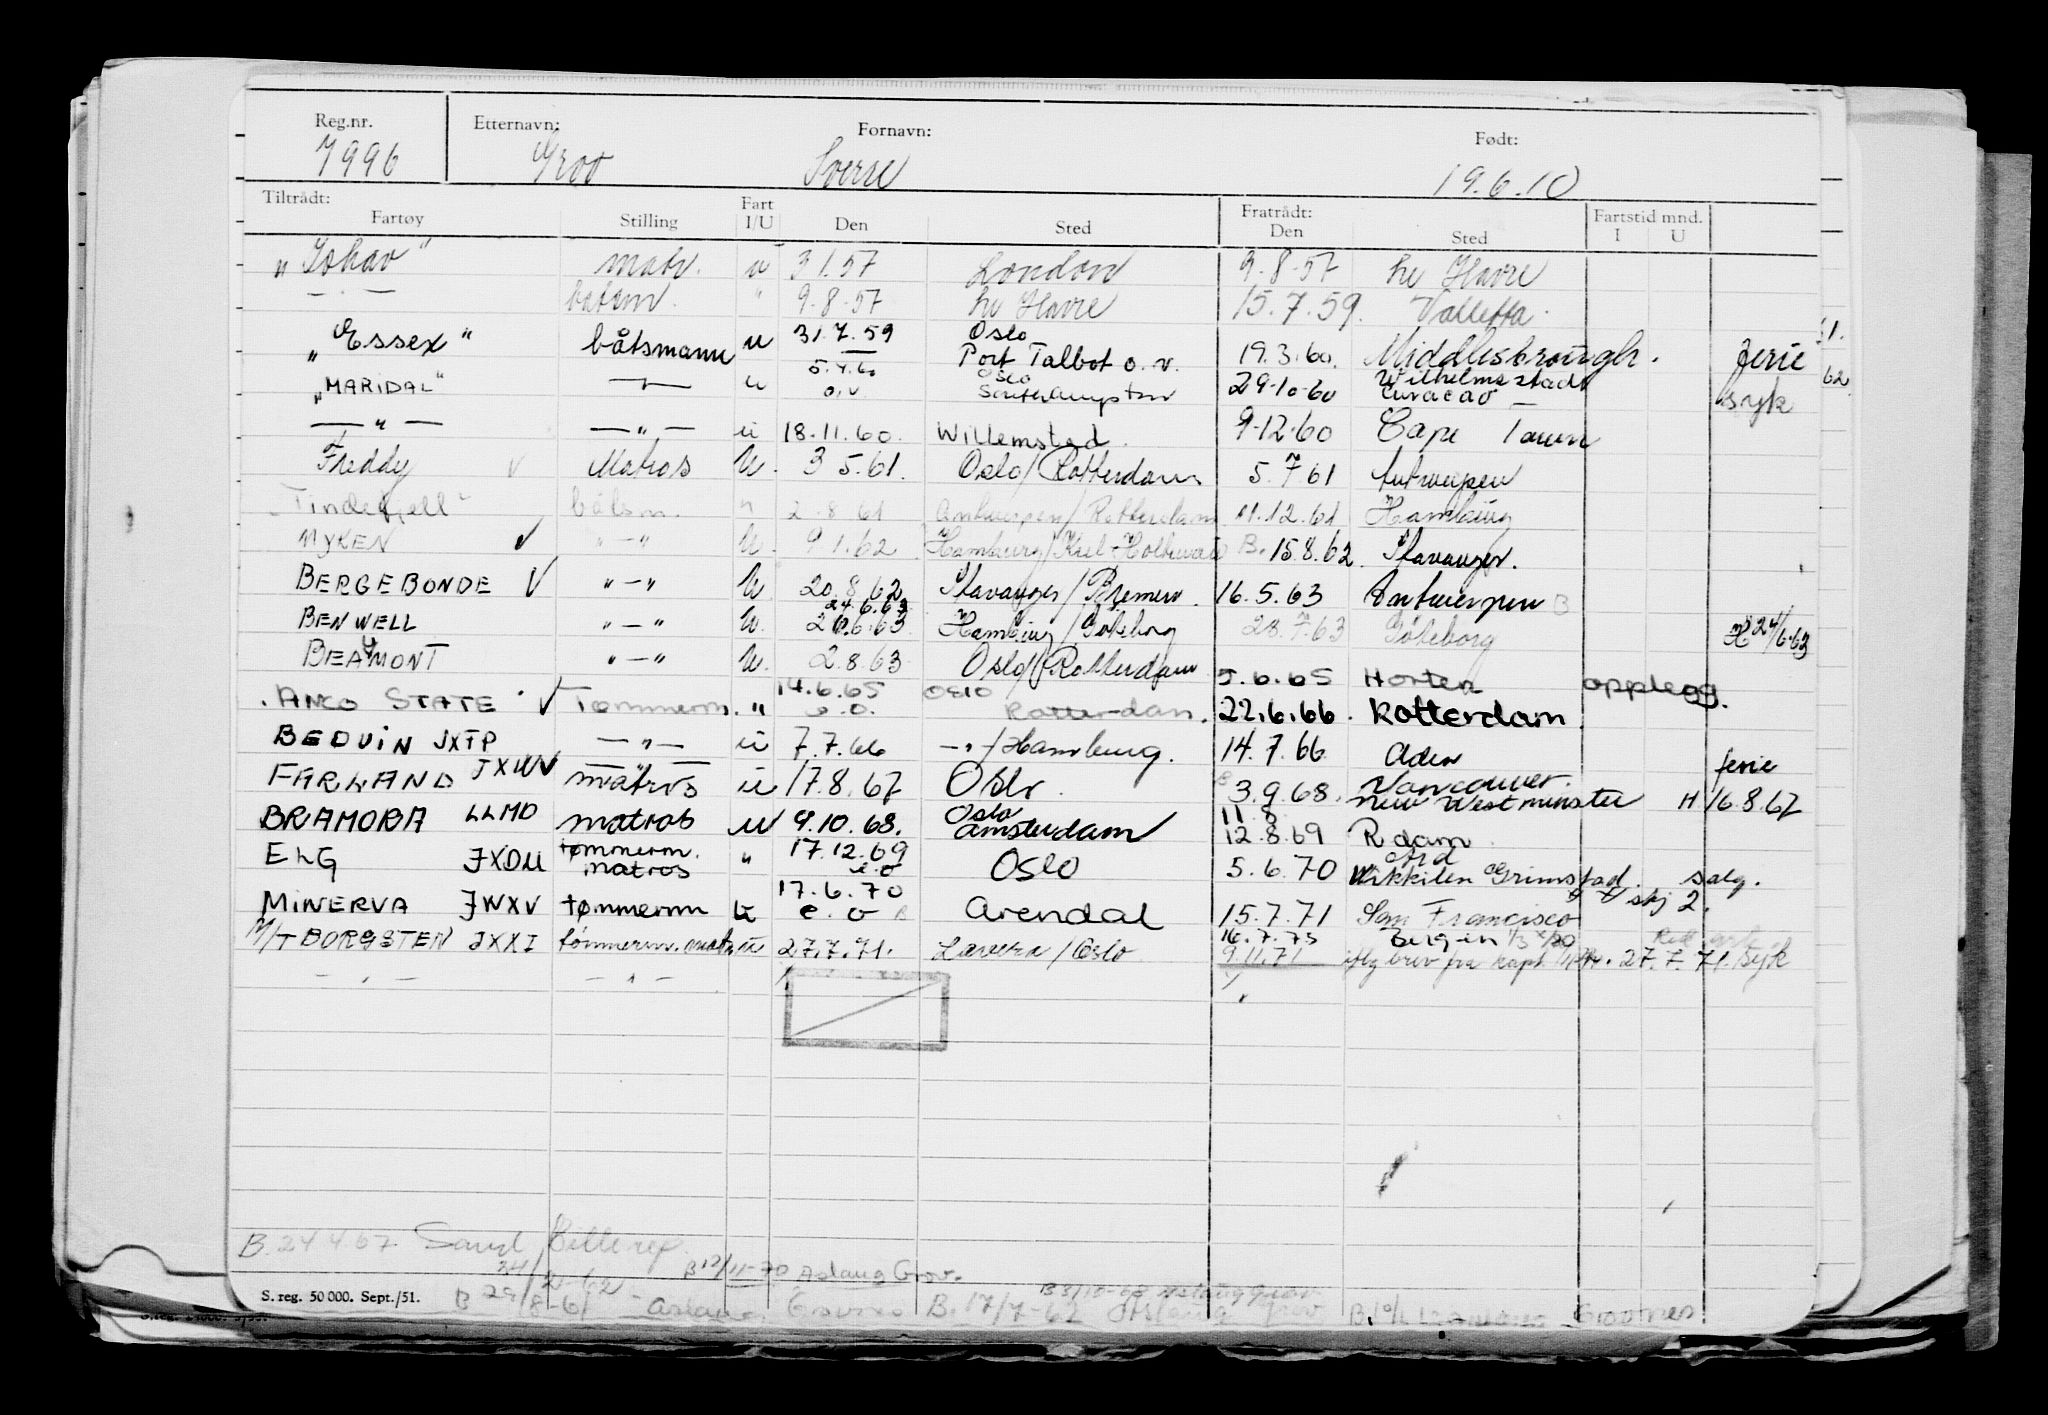 Reg.nr. Etternavn: Fornavn: Født:
7996 Groo Sverre 19.6.10
Tiltrådt: Fart Fratrådt: Fartstid mnd.
Fartøy Stilling I/U Den Sted Den Sted I U
matr. u 3 1.57 London 9.8.57 Le Havre
— . — båtsm. " 9.8.57 Le Havre 15.7.59. Valletta.
"Essex" båtsmann u 31.7.59 Oslo Port Talbot o.v. 19.3.60. Middlesbrough. ferie
"MARIDAL" — " — u 5.4.60 o.v Oslo Southampton 29-10-60 Wilhelmsstadt Curacao syk
— " — — " — u 18.11.60. Willemstad. 9-12-60 Cape Town
Freddy V Matros U. 3 5.61. Oslo/Rotterdam 5.7 61 Antwerpen
Tindefjell båtsm. " 2 8 61 Antwerpen/Rotterdam 11.12.61 Hamburg
NYKEN V " — " U. 9 1.62 Hamburg/Kiel-Holtenau B. 15.8.62. Stavanger.
BERGEBONDE V " — " U. 20.8.62 Stavanger/Bremen. 16.5.63 Antwerpen B
BENWELL " — " U. 24.6.63 26.6.63 Hamburg/Göteborg 28.7.63 Göteborg 24/6-63
BEAUMONT " — " U. 2.8.63 Oslo/Rotterdam 5.6.65 Horten opplegg.
ANCO STATE V Tømmerm. " 14.6.65 Oslo Rotterdam. 22.6.66. Rotterdam
BEDUIN JXTP — " — u 7.7.66 — " —/Hamburg. 14.7.66 Aden ferie
FARLAND matros u 17.8.67 Oslo. 3.9.68. Vancouver. New Westminster H 16.8.67
BRAMORA LLMO matros u 9.10.68. Oslo Amsterdam 11.8 12.8.69 R dam
ELG JXDM tømmerm. matros " 17.12.69 e.o Oslo 5.6.70 Ard Vikkilen Grimstad. salg.
MINERVA JWXV tømmerm U 17.6.70 e.o B Arendal 15.7.71 San Francisco skj 2.
M/T BORGSTEN JXXI tømmerm. matr. u 27.7.71. Lavera/Oslo 16.7.73 9.11.71 Bergen iflg brev fra kapt. 27.7.71. Syk
— " — — " —
B. 24 4.67 Sand
B 12/11-70 Aslaug Grov.
S. reg. 50 000. Sept./51. B 29/8-61 B. 17/7-62